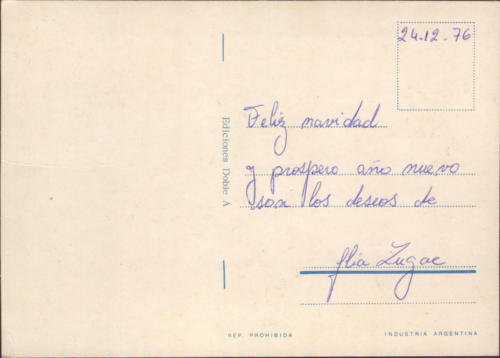 24-12-76
Feliz navidad
y prospero año nuevo
son los deseos de
flia Zugac
Ediciones Doble A
REP. PROHIBIDA
INDUSTRIA ARGENTINA